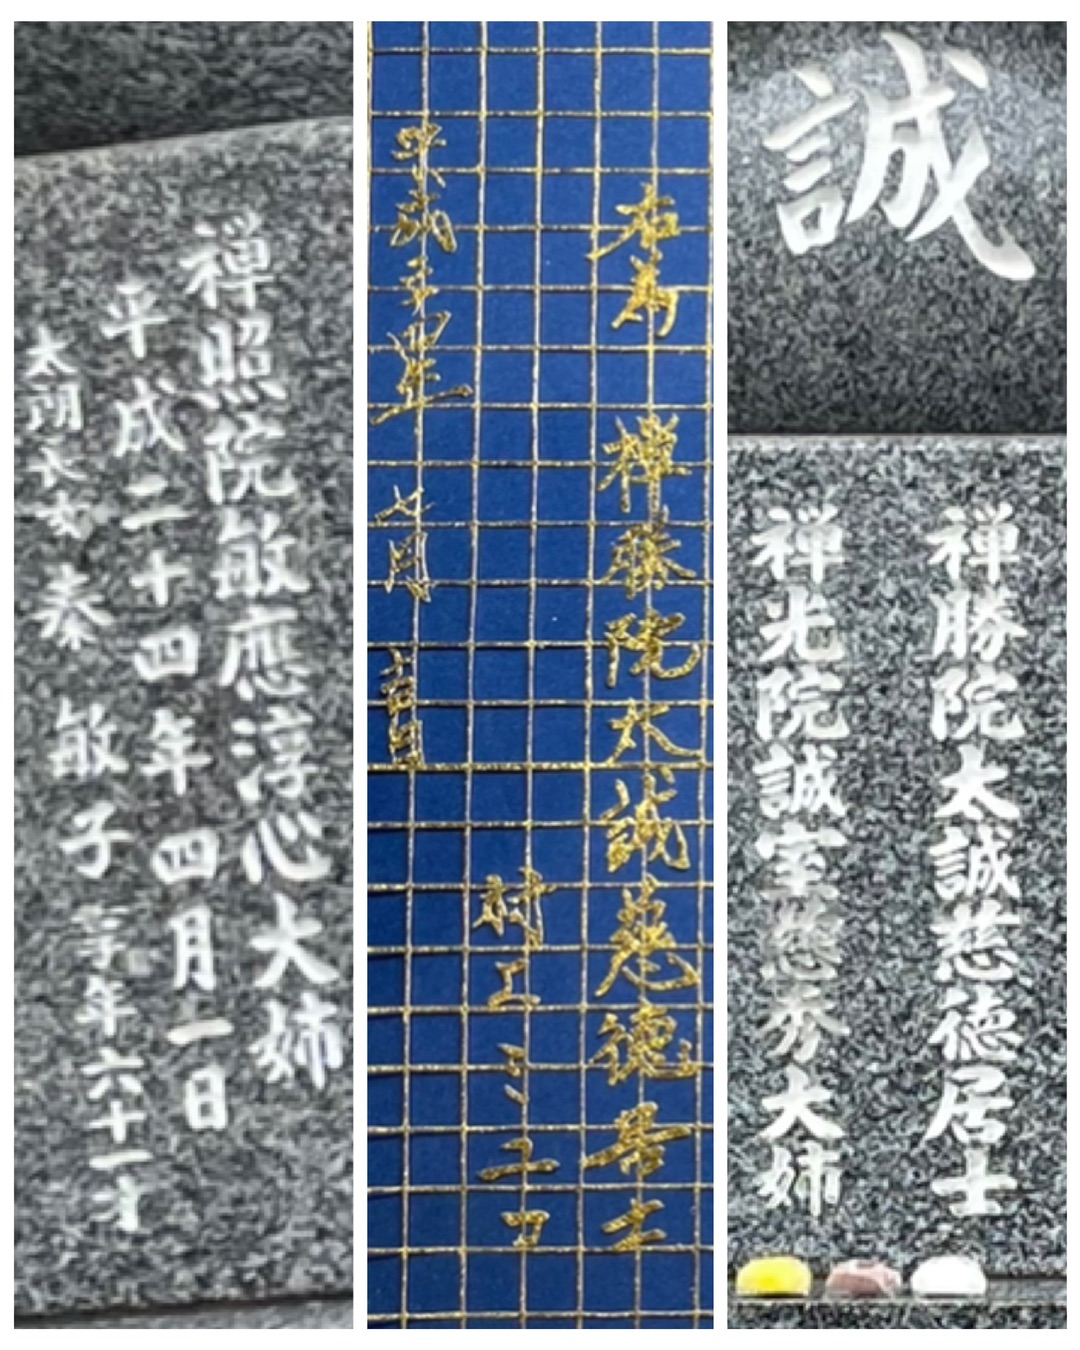 禅照院敏應淳心大姉
平成二十四年四月一日
太朗長女 泰 敏子 享年六十一才
右為 禅勝院太誠慈徳居士
村上
平成 年 七月 日
誠
禅勝院太誠慈徳居士
禅光院誠室慈秀大姉